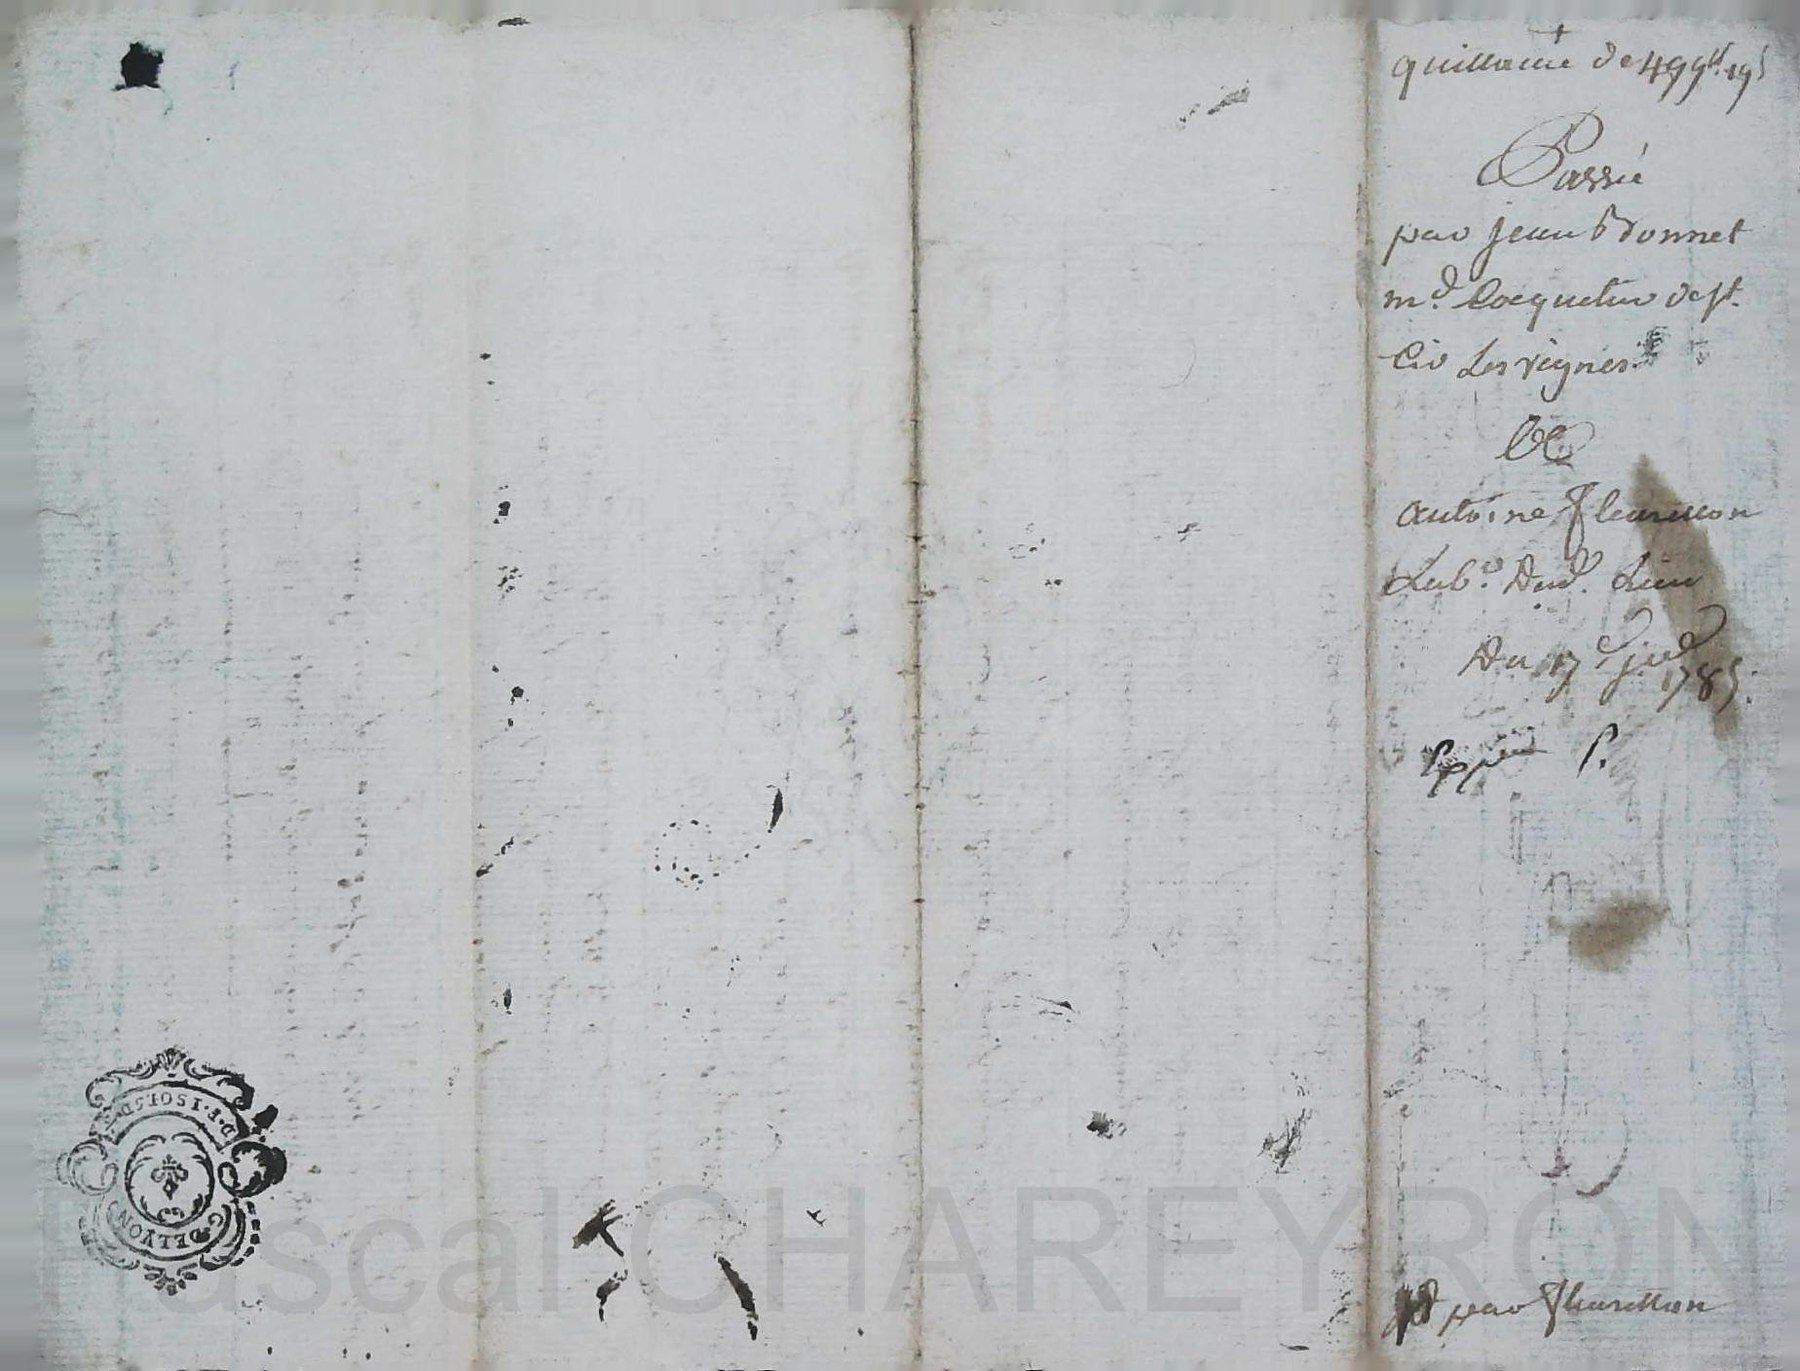 quittance de 499lt. 19s
Passée
par jean Bonnet
md. Coquetier de st.
Cir Les vignes.
Et
antoine fleurillon
Labr. Dud. Lieu
Du 17e jet
1785.
Exped P.
pour fleurillon
D.F. 1SOL5D.
G. DELYON
Pascal CHAREYRON